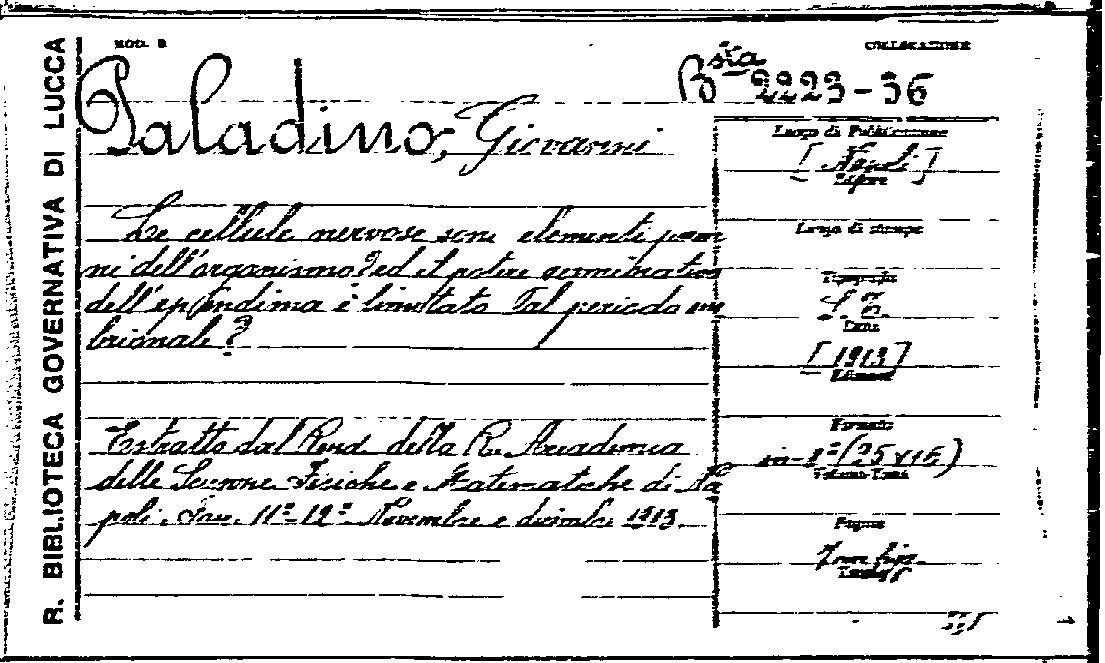 R. BIBLIOTECA GOVERNATIVA DI LUCCA
MOD. B
COLLOCAZIONE
Bsta 2223-36
Paladino, Giovanni
Le cellule nervose sono elementi peren
ni dell'organismo? ed il potere germinativo
dell'ependima è limitato al periodo em
brionale?
Estratto dal Rend. della R. Accademia
delle Scienze Fisiche e Matematiche di Na
poli. Fasc. 11º-12º Novembre e dicembre 1913.
Luogo di Pubblicazione
[Napoli]
Editore
Luogo di stampa
Tipografia
Data
[1913]
Edizione
Formato
in-8º (25x16)
Volume-Tomi
Pagine